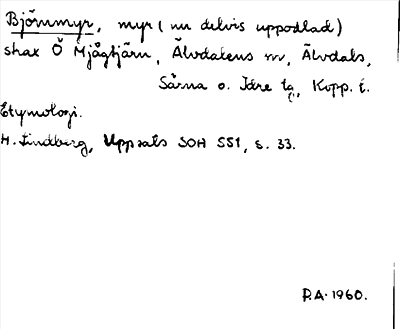 Björnmyr, myr (nu delvis uppodlad)
shax Ö Mjågtjärn, Älvdalens sn, Älvdals,
Särna o. Idre tg, Kopp. l.
Etymologi.
H. Lindberg, Uppsats SOH 551, s. 33.
P.A. 1960.